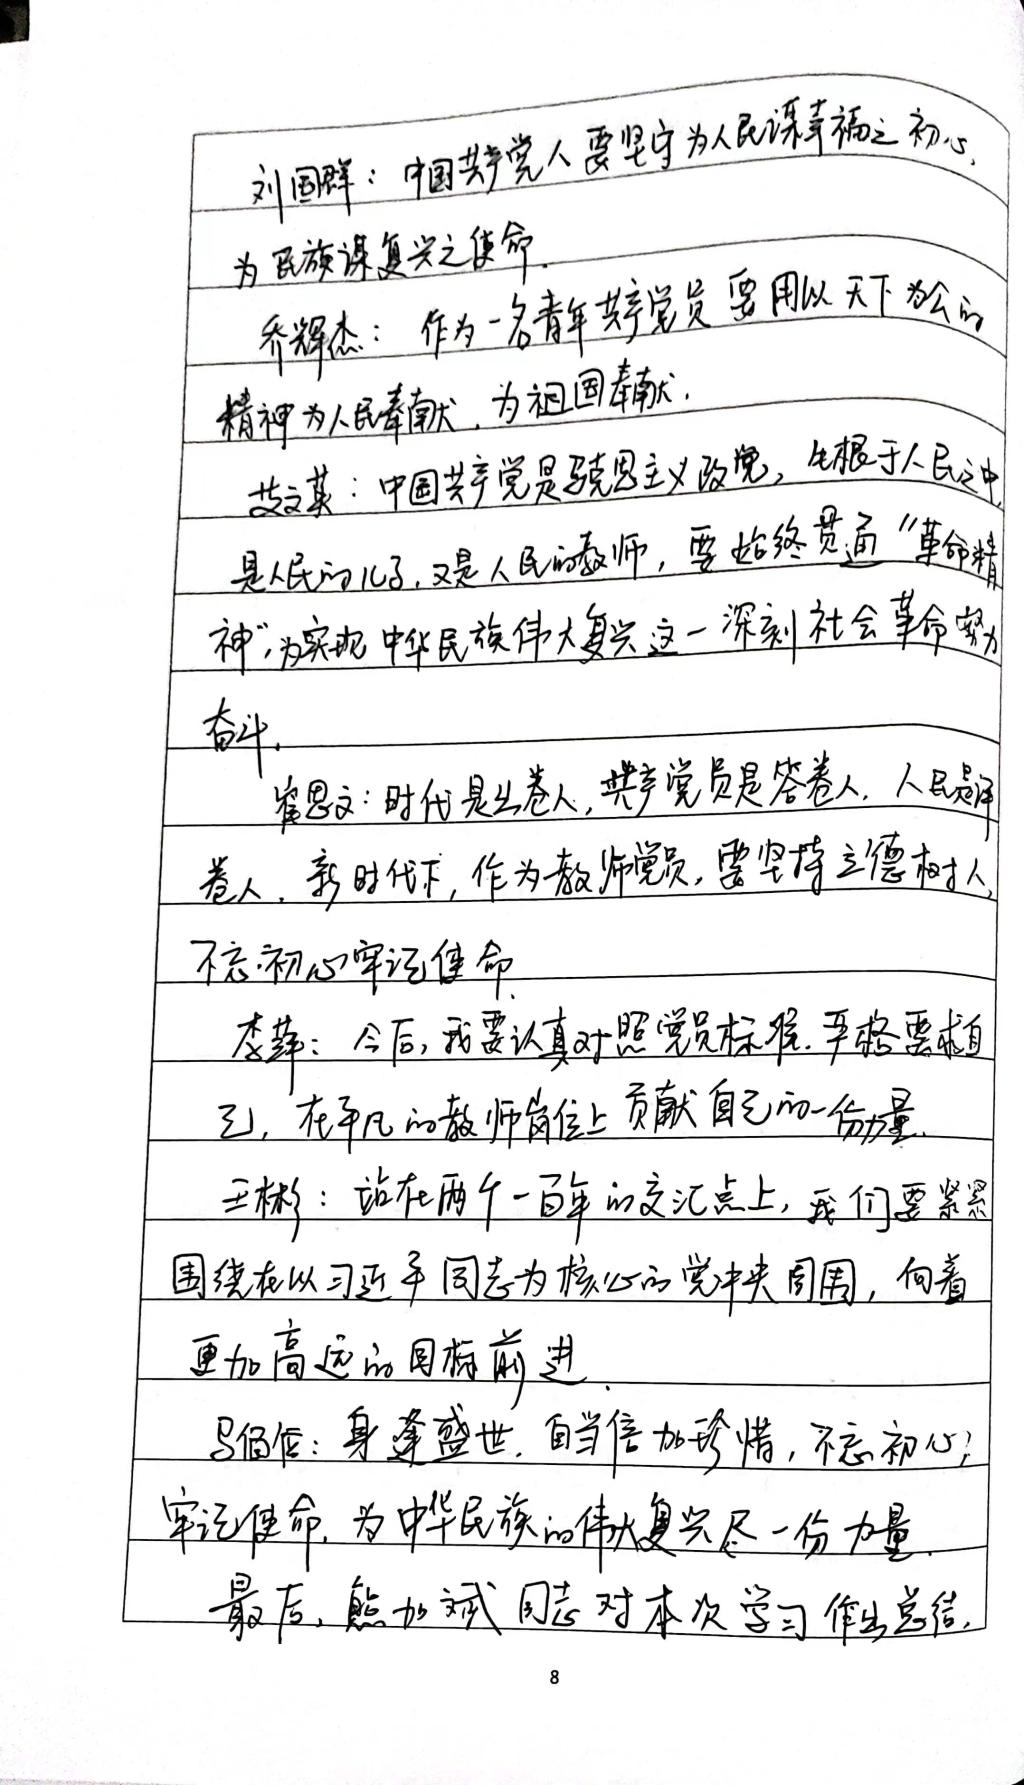 刘国群：中国共产党人要坚守为人民谋幸福之初心，
为民族谋复兴之使命.
乔辉杰：作为一名青年共产党员要用以天下为公的
精神为人民奉献，为祖国奉献.
艾文英：中国共产党是马克思主义政党，生根于人民之中，
是人民的儿子，又是人民的教师，要始终贯通“革命精
神”，为实现中华民族伟大复兴这一深刻社会革命努力
奋斗.
崔思文：时代是出卷人，共产党员是答卷人，人民是评
卷人，新时代下，作为教师党员，要坚持立德树人，
不忘初心牢记使命.
李萍：今后，我要认真对照党员标准，严格要求自
己，在平凡的教师岗位上贡献自己的一份力量.
王彬：站在两个一百年的交汇点上，我们要紧紧
围绕在以习近平同志为核心的党中央周围，向着
更加高远的目标前进.
马佰：身逢盛世，自当倍加珍惜，不忘初心，
牢记使命，为中华民族的伟大复兴尽一份力量.
最后，熊加斌同志对本次学习作出总结，
8